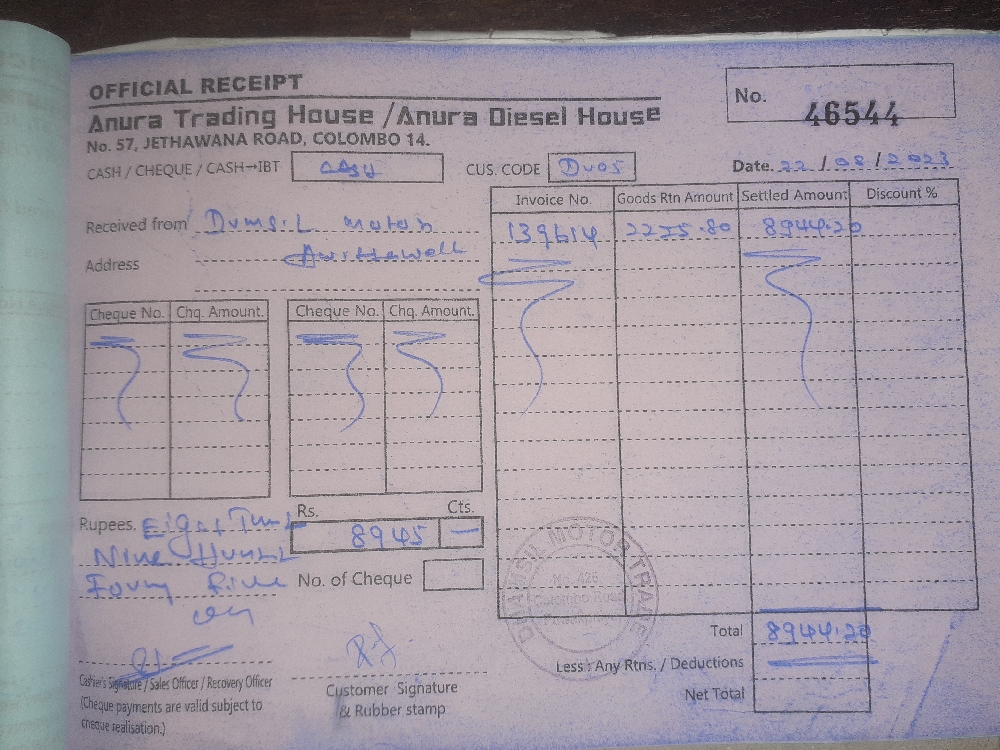 OFFICIAL RECEIPT
Anura Trading House / Anura Diesel House
No. 57, JETHAWANA ROAD, COLOMBO 14.
No. 46544
CASH / CHEQUE / CASH→IBT CASH
CUS. CODE DV05
Date. 22 / 08 / 2023
Received from
Address
Invoice No. Goods Rtn Amount Settled Amount Discount %
139614 2235.80 8944.20
Cheque No. Chq. Amount. Cheque No. Chq. Amount.
Rupees.
Rs. Cts.
8945 —
Nine
No. of Cheque
MOTOR
Total 8944.20
Less : Any Rtns. / Deductions
Net Total
Cashier's Signature / Sales Officer / Recovery Officer
(Cheque payments are valid subject to
cheque realisation.)
Customer Signature
& Rubber stamp